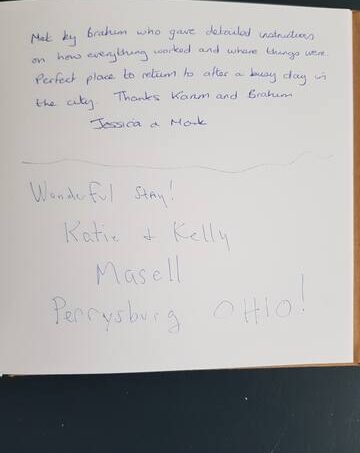 Met by Brahim who gave detailed instructions
on how everything worked and where things were.
Perfect place to return to after a busy day in
the city. Thanks Karim and Brahim
Jessica & Mark
Wonderful stay!
Katie + Kelly
Masell
Perrysburg OHIO!